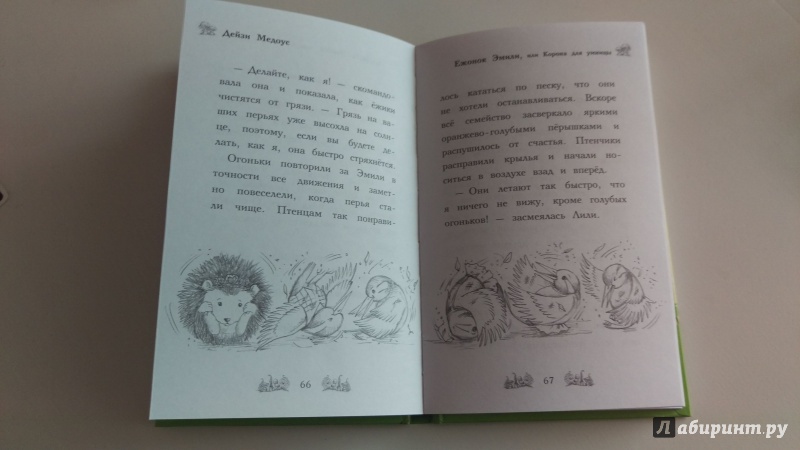 Дейзи Медоус
— Делайте, как я! — скомандо-
вала она и показала, как ёжики
чистятся от грязи. — Грязь на ва-
ших перьях уже высохла на солн-
це, поэтому, если вы будете де-
лать, как я, она быстро стряхнётся.
Огоньки повторили за Эмили в
точности все движения и замет-
но повеселели, когда перья ста-
ли чище. Птенцам так понрави-
66
Ежонок Эмили, или Корона для умницы
лось кататься по песку, что они
не хотели останавливаться. Вскоре
всё семейство засверкало яркими
оранжево-голубыми пёрышками и
распушилось от счастья. Птенчики
расправили крылья и начали но-
ситься в воздухе взад и вперёд.
— Они летают так быстро, что
я ничего не вижу, кроме голубых
огоньков! — засмеялась Лили.
67
Лабиринт.ру